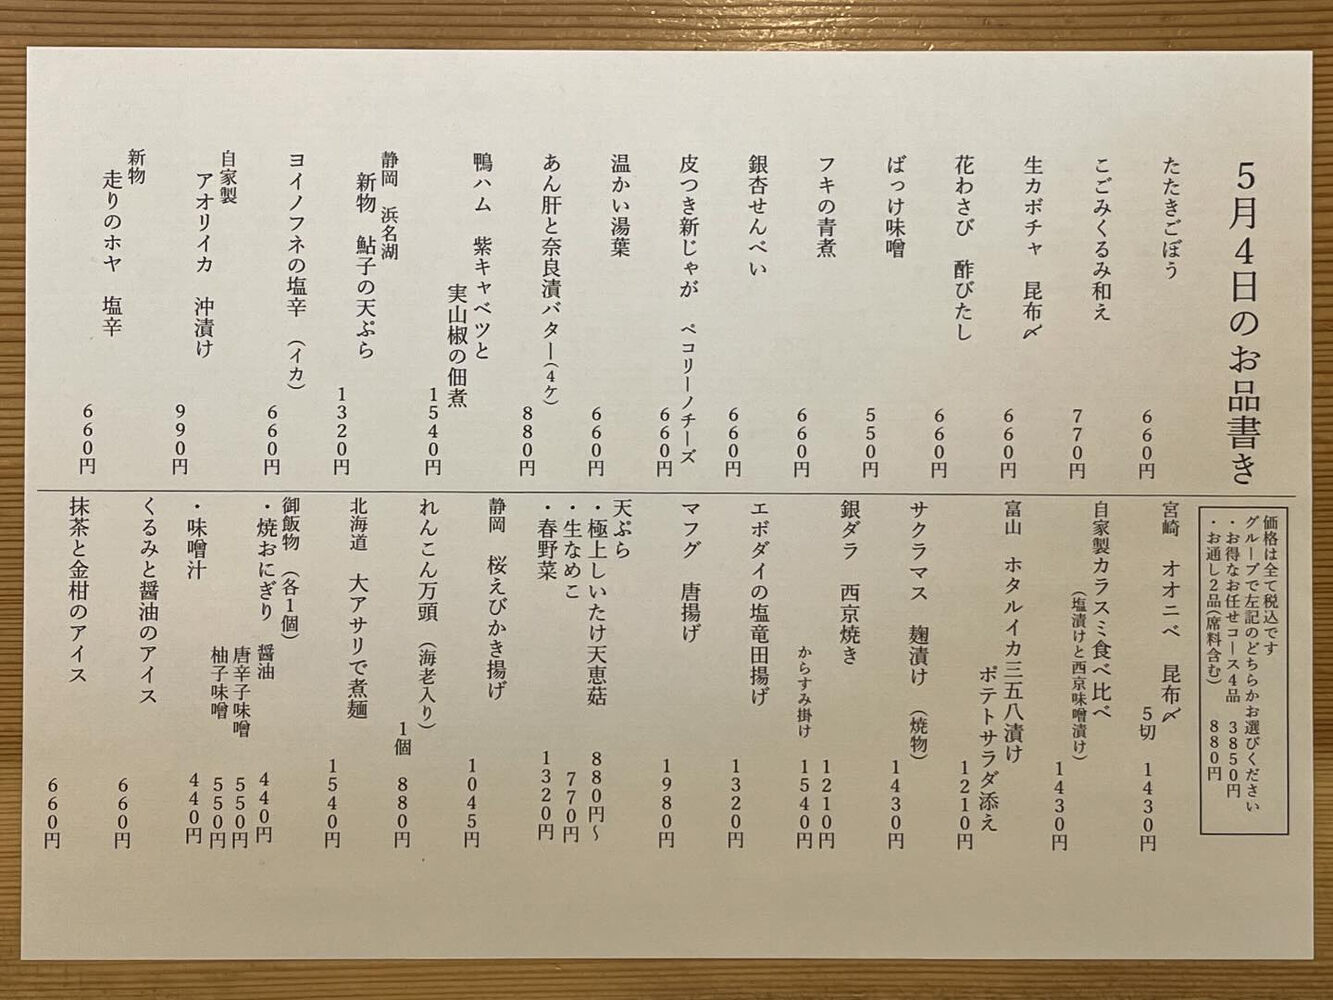 5月4日のお品書き
たたきごぼう
660円
こごみくるみ和え
770円
生カボチャ 昆布〆
660円
花わさび 酢びたし
660円
ばっけ味噌
550円
フキの青煮
660円
銀杏せんべい
660円
皮つき新じゃが ペコリーノチーズ
660円
温かい湯葉
660円
あん肝と奈良漬バター(4ケ)
880円
鴨ハム 紫キャベツと
実山椒の佃煮
1540円
静岡 浜名湖
新物 鮎子の天ぷら
1320円
ヨイノフネの塩辛 (イカ)
660円
自家製
アオリイカ 沖漬け
990円
新物
走りのホヤ 塩辛
660円
価格は全て税込です
グループで左記のどちらかお選びください
・お得なお任せコース4品 3850円
・お通し2品(席料含む) 880円
宮崎 オオニベ 昆布〆
5切 1430円
自家製カラスミ食べ比べ
(塩漬けと西京味噌漬け)
1430円
富山 ホタルイカ三五八漬け
ポテトサラダ添え
1210円
サクラマス 麹漬け (焼物)
1430円
銀ダラ 西京焼き
1210円
からすみ掛け 1540円
エボダイの塩竜田揚げ
1320円
マフグ 唐揚げ
1980円
天ぷら
・極上しいたけ天恵菇 880円〜
・生なめこ 770円
・春野菜 1320円
静岡 桜えびかき揚げ
1045円
れんこん万頭 (海老入り)
1個 880円
北海道 大アサリで煮麺
1540円
御飯物 (各1個)
・焼おにぎり 醤油 440円
唐辛子味噌 550円
柚子味噌 550円
・味噌汁 440円
くるみと醤油のアイス
660円
抹茶と金柑のアイス
660円